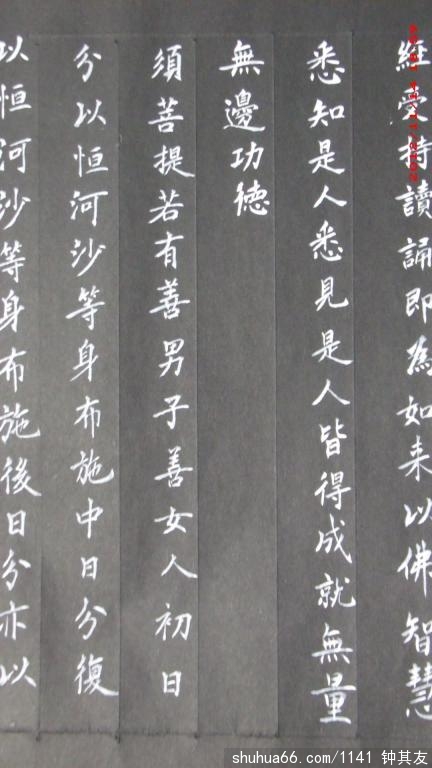 經受持讀誦即為如来以佛智慧
悉知是人悉見是人皆得成就無量
無邊功德
須菩提若有善男子善女人初日
分以恒河沙等身布施中日分復
以恒河沙等身布施後日分亦以
shuhua66.com/1141 钟其友